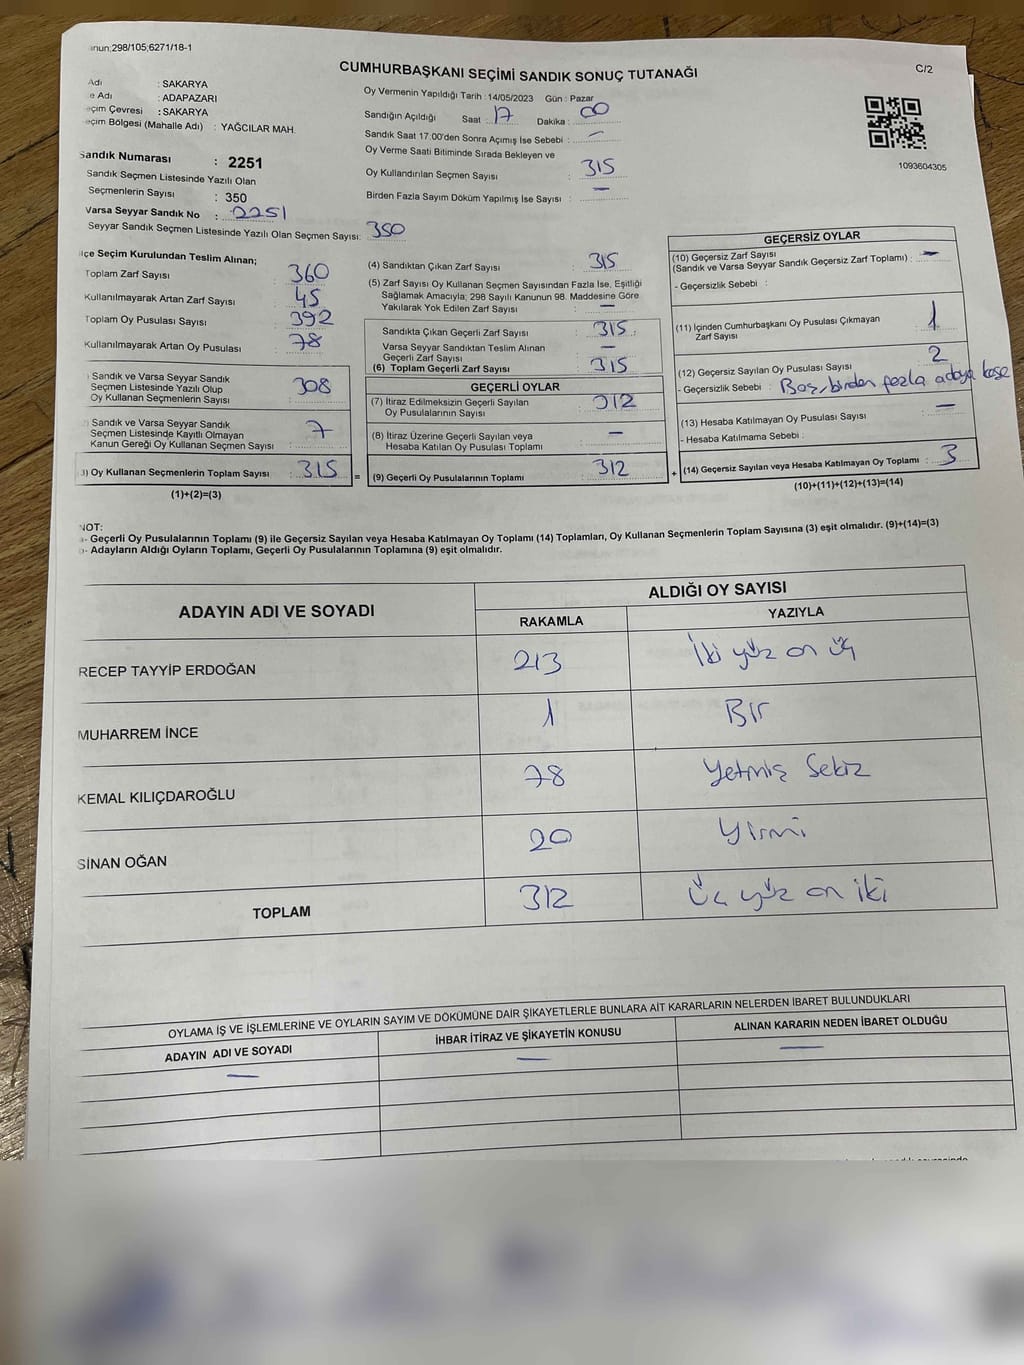 CUMHURBAŞKANI SEÇİMİ SANDIK SONUÇ TUTANAĞI
C/2
: SAKARYA
: ADAPAZARI
: SAKARYA
Bölgesi (Mahalle Adı) : YAĞCILAR MAH.
Sandık Numarası : 2251
Sandık Seçmen Listesinde Yazılı Olan
Seçmenlerin Sayısı : 350
Varsa Seyyar Sandık No : 2251
Seyyar Sandık Seçmen Listesinde Yazılı Olan Seçmen Sayısı: 350
Oy Vermenin Yapıldığı Tarih :14/05/2023 Gün : Pazar
Sandığın Açıldığı Saat : 17 Dakika : 00
Sandık Saat 17:00'den Sonra Açımış İse Sebebi : —
Oy Verme Saati Bitiminde Sırada Bekleyen ve
Oy Kullandırılan Seçmen Sayısı : 315
Birden Fazla Sayım Döküm Yapılmış İse Sayısı : —
1093604305
Seçim Kurulundan Teslim Alınan;
Toplam Zarf Sayısı : 360
Kullanılmayarak Artan Zarf Sayısı : 45
Toplam Oy Pusulası Sayısı : 392
Kullanılmayarak Artan Oy Pusulası : 78
Sandık ve Varsa Seyyar Sandık
Seçmen Listesinde Yazılı Olup
Oy Kullanan Seçmenlerin Sayısı : 308
Sandık ve Varsa Seyyar Sandık
Seçmen Listesinde Kayıtlı Olmayan
Kanun Gereği Oy Kullanan Seçmen Sayısı : 7
) Oy Kullanan Seçmenlerin Toplam Sayısı : 315 =
(1)+(2)=(3)
(4) Sandıktan Çıkan Zarf Sayısı : 315
(5) Zarf Sayısı Oy Kullanan Seçmen Sayısından Fazla İse, Eşitliği
Sağlamak Amacıyla; 298 Sayılı Kanunun 98. Maddesine Göre
Yakılarak Yok Edilen Zarf Sayısı : —
Sandıkta Çıkan Geçerli Zarf Sayısı : 315
Varsa Seyyar Sandıktan Teslim Alınan
Geçerli Zarf Sayısı : —
(6) Toplam Geçerli Zarf Sayısı : 315
GEÇERLİ OYLAR
(7) İtiraz Edilmeksizin Geçerli Sayılan
Oy Pusulalarının Sayısı : 312
(8) İtiraz Üzerine Geçerli Sayılan veya
Hesaba Katılan Oy Pusulası Toplamı : —
(9) Geçerli Oy Pusulalarının Toplamı : 312 +
GEÇERSİZ OYLAR
(10) Geçersiz Zarf Sayısı
(Sandık ve Varsa Seyyar Sandık Geçersiz Zarf Toplamı) : —
- Geçersizlik Sebebi :
(11) İçinden Cumhurbaşkanı Oy Pusulası Çıkmayan
Zarf Sayısı : 1
(12) Geçersiz Sayılan Oy Pusulası Sayısı : 2
- Geçersizlik Sebebi : Boş, birden fazla adaya kaşe
(13) Hesaba Katılmayan Oy Pusulası Sayısı : —
- Hesaba Katılmama Sebebi :
(14) Geçersiz Sayılan veya Hesaba Katılmayan Oy Toplamı : 3
(10)+(11)+(12)+(13)=(14)
NOT:
- Geçerli Oy Pusulalarının Toplamı (9) ile Geçersiz Sayılan veya Hesaba Katılmayan Oy Toplamı (14) Toplamları, Oy Kullanan Seçmenlerin Toplam Sayısına (3) eşit olmalıdır. (9)+(14)=(3)
- Adayların Aldığı Oyların Toplamı, Geçerli Oy Pusulalarının Toplamına (9) eşit olmalıdır.
ADAYIN ADI VE SOYADI
ALDIĞI OY SAYISI
RAKAMLA YAZIYLA
RECEP TAYYİP ERDOĞAN 213 İki yüz on üç
MUHARREM İNCE 1 Bir
KEMAL KILIÇDAROĞLU 78 Yetmiş Sekiz
SİNAN OĞAN 20 Yirmi
TOPLAM 312 Üç yüz on iki
OYLAMA İŞ VE İŞLEMLERİNE VE OYLARIN SAYIM VE DÖKÜMÜNE DAİR ŞİKAYETLERLE BUNLARA AİT KARARLARIN NELERDEN İBARET BULUNDUKLARI
ADAYIN ADI VE SOYADI İHBAR İTİRAZ VE ŞİKAYETİN KONUSU ALINAN KARARIN NEDEN İBARET OLDUĞU
— — —